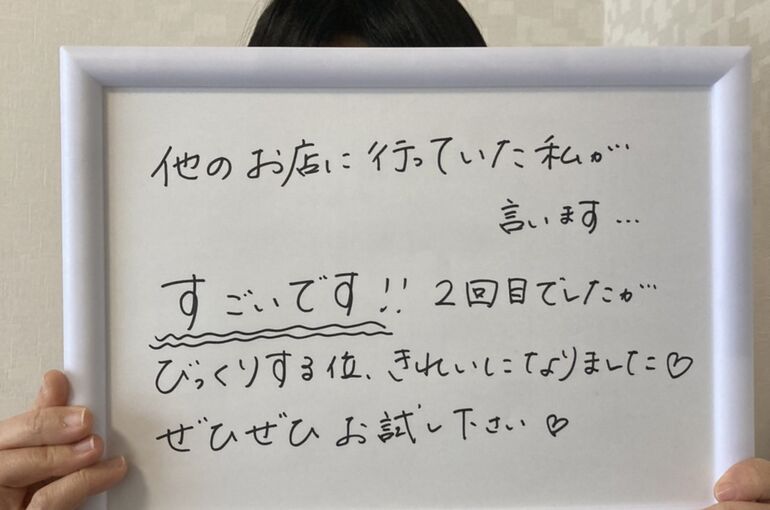 他のお店に行っていた私が
言います…
すごいです!! 2回目でしたが
びっくりする位、きれいになりました♡
ぜひぜひお試し下さい♡